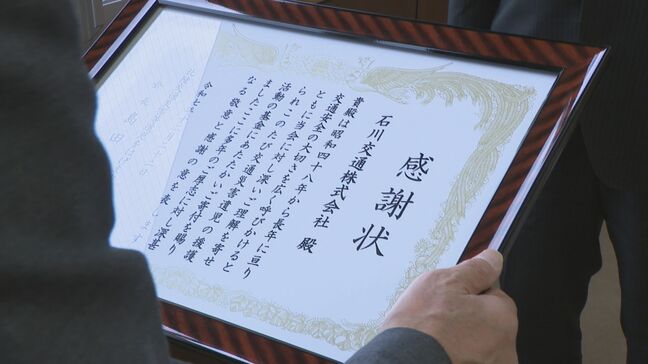 感謝状
石川交通株式会社 殿
貴殿は昭和四十八年から長年に亘り
交通安全の大切さを広く呼びかけると
ともに当会に対し深いご理解を寄せ
られこのたび交通災害遺児の援護
活動の基金にあたたかいご寄付を賜り
ましたここに多年のご厚志に対し深甚
なる敬意と感謝の意を表します
令和七